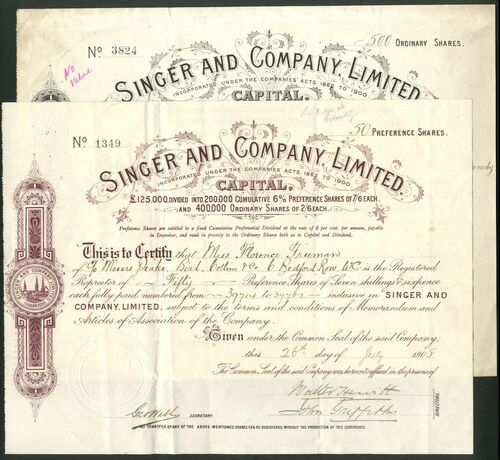 No 3824
500 ORDINARY SHARES.
No Value
SINGER AND COMPANY, LIMITED
INCORPORATED UNDER THE COMPANIES ACTS 1862 TO 1900
CAPITAL,
No 1349
50 PREFERENCE SHARES.
SINGER AND COMPANY, LIMITED.
INCORPORATED UNDER THE COMPANIES ACTS 1862 TO 1900
CAPITAL,
£125,000 DIVIDED INTO 200,000 CUMULATIVE 6% PREFERENCE SHARES OF 7/6 EACH
AND 400,000 ORDINARY SHARES OF 2/6 EACH.
Preference Shares are entitled to a fixed Cumulative Preferential Dividend at the rate of 6 per cent. per annum, payable
in December, and rank in priority to the Ordinary Shares both as to Capital and Dividend.
This is to Certify that Miss Florence Freeman
of Messrs Peake, Bird, Collins & Co 6 Bedford Row WC is the Registered
Proprietor of Fifty Preference Shares of Seven shillings & sixpence
each fully paid numbered from 39714 to 39763 inclusive in SINGER AND
COMPANY, LIMITED, subject to the terms and conditions of Memorandum and
Articles of Association of the Company.
Given under the Common Seal of the said Company,
this 28th day of July 1905
The Common Seal of the said Company was hereunto affixed in the presence of
Walter Hewitt
John Griffiths
DIRECTORS.
SECRETARY.
NO TRANSFER OF ANY OF THE ABOVE-MENTIONED SHARES CAN BE REGISTERED WITHOUT THE PRODUCTION OF THIS CERTIFICATE.
SINGER AND COMPANY LIMITED